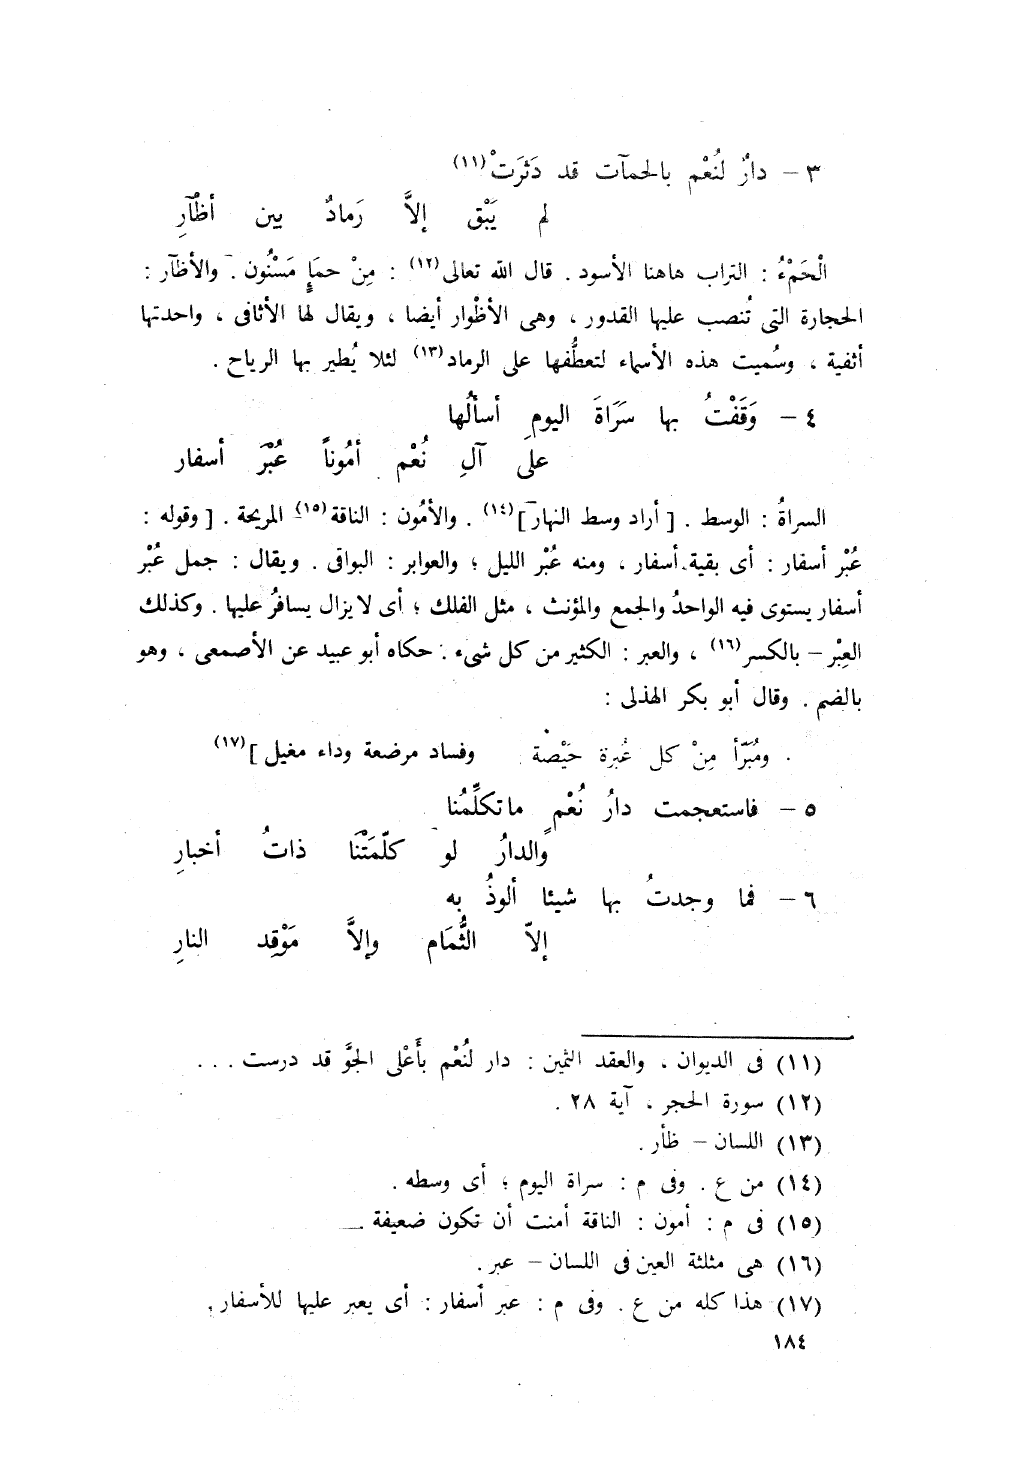 ٣ – دارٌ لنُعْم بالحمآت قد دَثرَتْ (١١)
لم يَبْق إلاَّ رَمادٌ بين أظْآرِ
الْحَمْءُ : التراب هاهنا الأسود . قال الله تعالى (١٢) : مِنْ حمَإٍ مَسْنُون . والأظآر :
الحجارة التى تُنصب عليها القدور ، وهى الأظْوار أيضا ، ويقال لها الأثافى ، واحدتها
أثفية ، وسُميت هذه الأسماء لتعطُّفها على الرماد (١٣) لئلا يُطير بها الرياح .
٤ – وَقَفْتُ بها سَرَاةَ اليومِ أسألُها
على آلِ نُعْم أمُوناً عُبْرَ أسفار
السراةُ : الوسط . [ أراد وسط النهار ] (١٤) . والأمُون : الناقة (١٥) المريحة . [ وقوله :
عُبْر أسفار : أى بقية أسفار ، ومنه عُبْر الليل ؛ والعوابر : البواقى . ويقال : جمل عُبْر
أسفار يستوى فيه الواحدُ والجمع والمؤنث ، مثل الفلك ؛ أى لا يزال يسافرُ عليها . وكذلك
العِبْر – بالكسر (١٦) ، والعبر : الكثير من كل شىء . حكاه أبو عبيد عن الأصمعى ، وهو
بالضم . وقال أبو بكر الهذلى :
ومُبَرّأ مِنْ كل عُبرة حَيْضة وفساد مرضعة وداء مغيل ] (١٧)
٥ – فاستعجمت دارُ نُعْمٍ ما تكلِّمُنا
والدارُ لو كلّمَتْنَا ذاتُ أخبارِ
٦ – فما وجدتُ بها شيئا ألوذُ به
إلاّ الثُّمَام وإلاَّ مَوْقِد النارِ
(١١) فى الديوان ، والعقد الثمين : دار لنُعْم بأَعْلى الجوَّ قد درست . . .
(١٢) سورة الحجر ، آية ٢٨ .
(١٣) اللسان – ظأر .
(١٤) من ع . وفى م : سراة اليوم ؛ أى وسطه .
(١٥) فى م : أمون : الناقة أمنت أن تكون ضعيفة .
(١٦) هى مثلثة العين فى اللسان – عبر .
(١٧) هذا كله من ع . وفى م : عبر أسفار : أى يعبر عليها للأسفار .
١٨٤